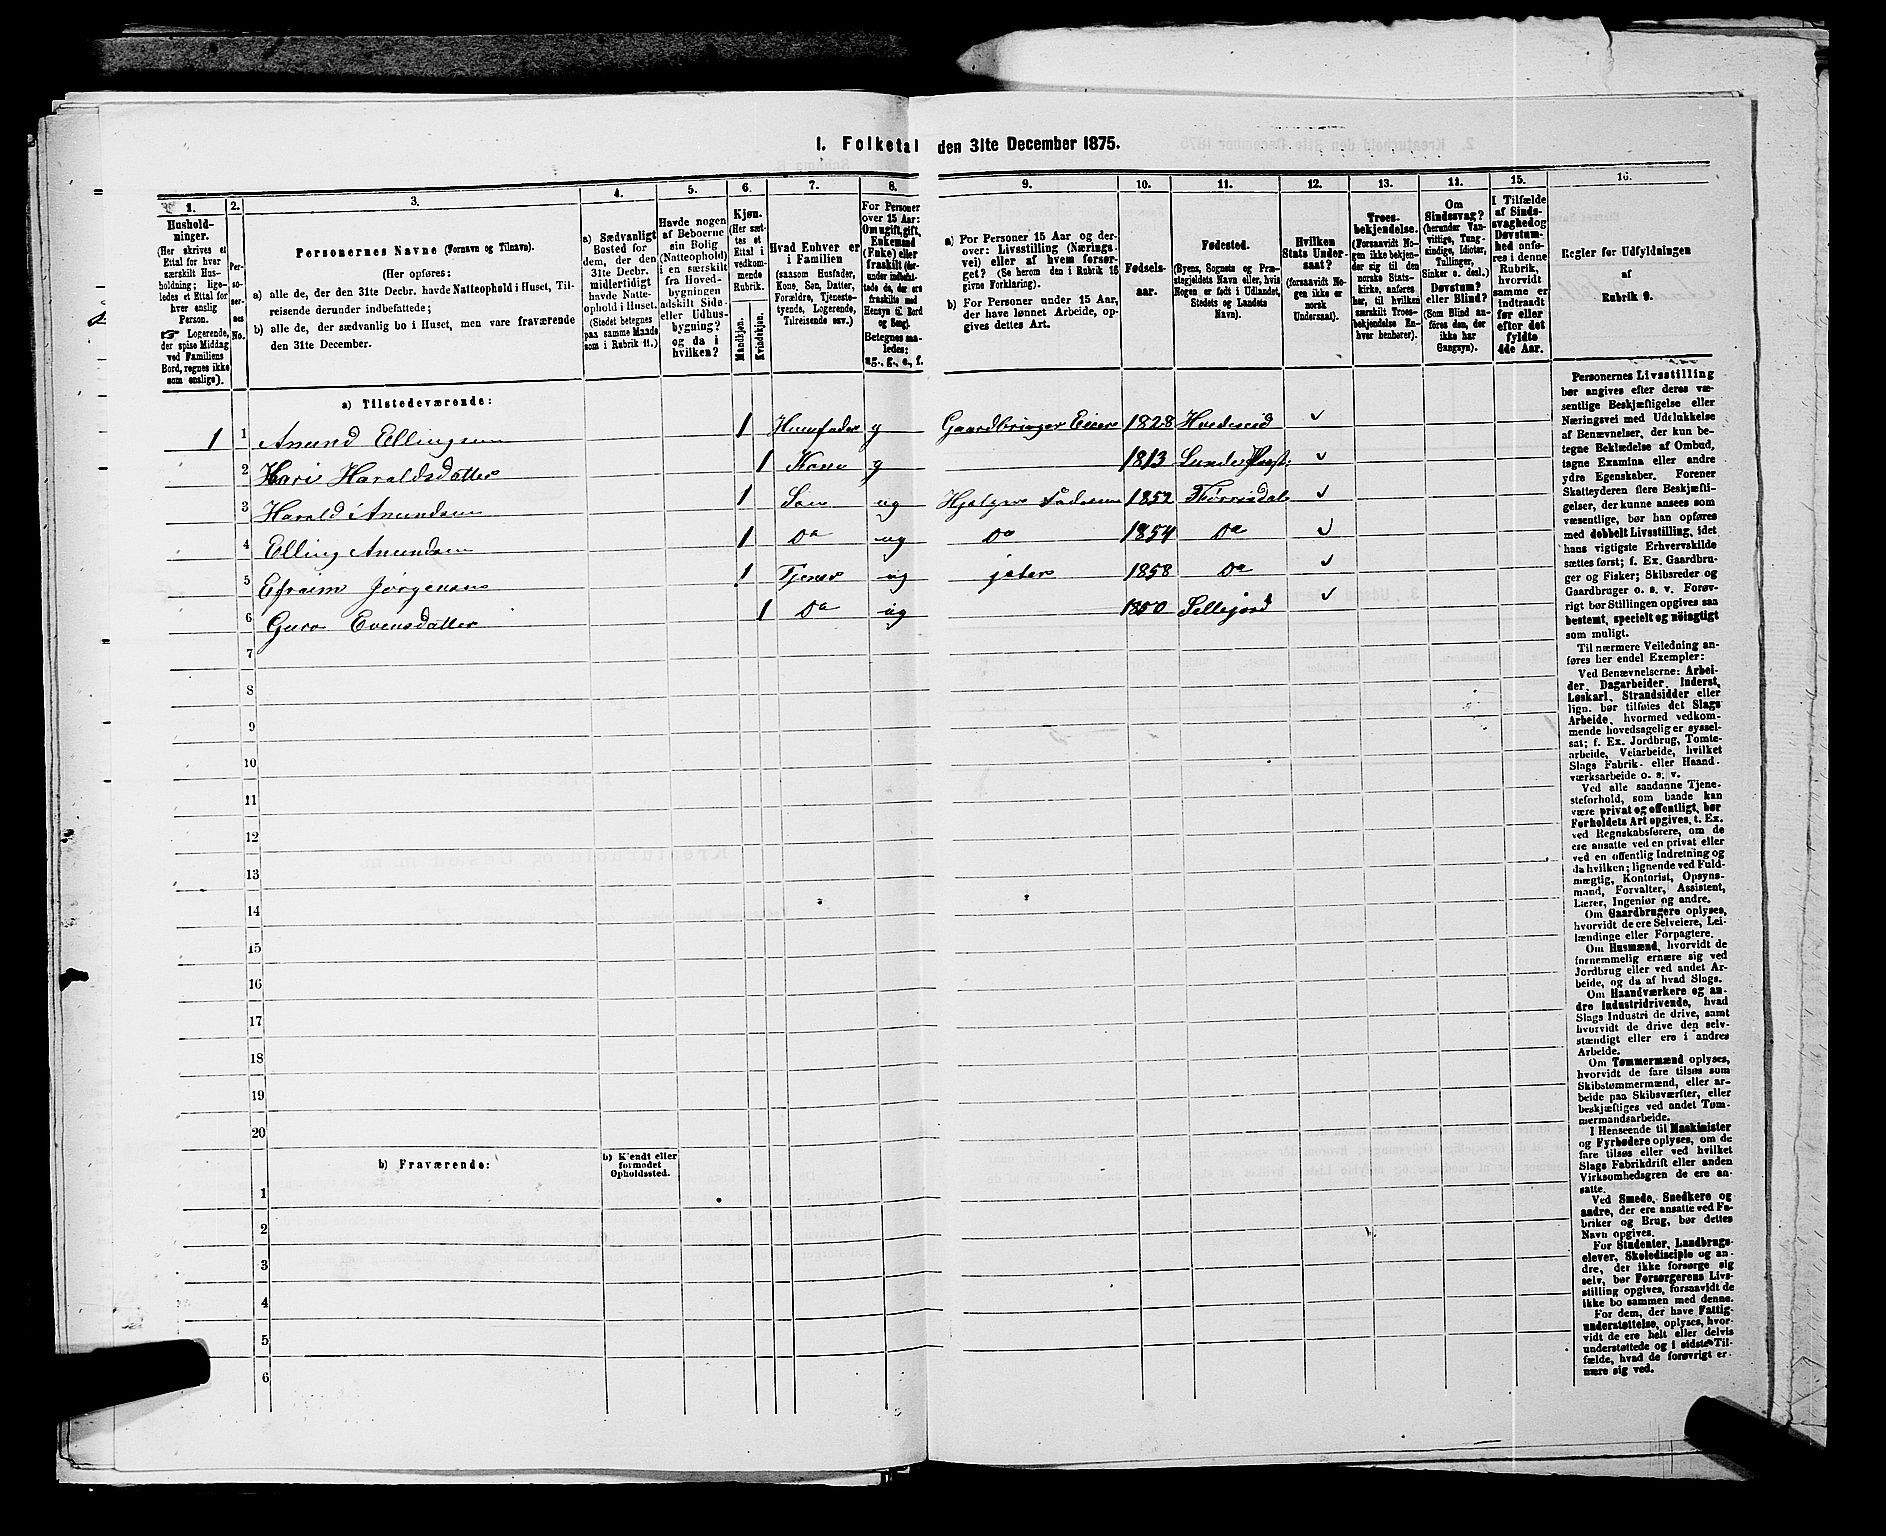 1. Folketal den 31te December 1875.
1. 2. 3. 4. 5. 6. 7. 8. 9. 10. 11. 12. 13. 14. 15. 16.
Hushold-
ninger.
(Her skrives et
Ettal for hver
særskilt Hus-
holdning; lige-
ledes et Ettal for
hver enslig
Person.
☞ Logerende,
der spise Middag
ved Familiens
Bord, regnes ikke
som enslige).
Per-
so-
ner-
nes
No.
Personernes Navne (Fornavn og Tilnavn).
(Her opføres:
a) alle de, der den 31te Decbr. havde Natteophold i Huset, Til-
reisende derunder indbefattede;
b) alle de, der sædvanlig bo i Huset, men vare fraværende
den 31te December.
a) Sædvanligt
Bosted for
dem, der den
31te Decbr.
midlertidigt
havde Natte-
ophold i Huset.
(Stedet betegnes
paa samme Maade
som i Rubrik 11.)
Havde nogen
af Beboerne
sin Bolig
(Natteophold)
i en særskilt
fra Hoved-
bygningen
adskilt Side-
eller Udhus-
bygning?
og da i
hvilken?
Kjøn.
(Her sæt-
tes et
Ettal i
vedkom-
mende
Rubrik.
Mandkjøn.
Kvindekjøn.
Hvad Enhver er
i Familien
(saasom Husfader,
Kone, Søn, Datter,
Forældre, Tjeneste-
tyende, Logerende,
Tilreisende osv.)
For Personer
over 15 Aar:
Om ugift, gift,
Enkemand
(Enke) eller
fraskilt (der-
under indbefat-
tede de, der ere
fraskilte med
Hensyn til Bord
og Seng).
Betegnes saa-
ledes:
ug., g., e., f.
a) For Personer 15 Aar og der-
over: Livsstilling (Nærings-
vei) eller af hvem forsør-
get? (Se herom den i Rubrik 16
givne Forklaring).
b) For Personer under 15 Aar,
der have lønnet Arbeide, op-
gives dettes Art.
Fødsels-
aar.
Fødested.
(Byens, Sognets og Præ-
stegjeldets Navn eller, hvis
Nogen er født i Udlandet,
Stedets og Landets
Navn).
Hvilken
Stats Under-
saat?
(forsaavidt No-
gen ikke er
norsk
Undersaat).
Troes-
bekjendelse.
(Forsaavidt No-
gen ikke bekjen-
der sig til den
norske Stats-
kirke, anføres
her, til hvilken
særskilt Troes-
bekjendelse En-
hver henhører).
Om
Sindssvag?
(herunder Van-
vittige, Tung-
sindige, Idioter,
Tullinger,
Sinker o. desl.)
Døvstum?
eller Blind?
(Som Blind an-
føres den, der
ikke har
Gangsyn).
I Tilfælde
af Sinds-
svaghed og
Døvstum-
hed anfø-
res i denne
Rubrik,
hvorvidt
samme er
indtraadt
før eller
efter det
fyldte
4de Aar.
Regler for Udfyldningen
af
Rubrik 9.
a) Tilstedeværende:
1 1 Anund Ellingsen 1 Huusfader g Gaardbruger Eier 1828 Hvideseid
2 Kari Haraldsdatter 1 Kone g 1813
3 Harald Anundsen 1 Søn ug Hjelper Faderen 1852 Tørrisdal
4 Elling Anundsen 1 Do ug Do 1854 Do
5 Efraim Jørgensen 1 Tjener ug jeter 1858 Do
6 Guro Evensdatter 1 Do ug 1850 Sillejord
7
8
9
10
11
12
13
14
15
16
17
18
19
20
b) Fraværende:
b) Kjendt eller
formodet
Opholdssted.
1
2
3
4
5
6
Personernes Livsstilling
bør angives efter deres væ-
sentlige Beskjæftigelse eller
Næringsvei med Udelukkelse
af Benævnelser, der kun be-
tegne Beklædelse af Ombud,
tagne Examina eller andre
ydre Egenskaber. Forener
Skatteyderen flere Beskjæfti-
gelser, der kunne ansees som
væsentlige, bør han opføres
med dobbelt Livsstilling, idet
hans vigtigste Erhvervskilde
sættes først; f. Ex. Gaardbru-
ger og Fisker; Skibsreder og
Gaardbruger o. s. v. Forøv-
rigt bør Stillingen opgives saa
bestemt, specielt og nøiagtigt
som muligt.
Til nærmere Veiledning an-
føres her endel Exempler:
Ved Benævnelserne: Arbei-
der, Dagarbeider, Inderst,
Løskarl, Strandsidder eller
lign. bør tilføies det Slags
Arbeide, hvormed vedkom-
mende hovedsagelig er syssel-
sat; f. Ex. Jordbrug, Tomte-
arbeide, Veiarbeide, hvilket
Slags Fabrik- eller Haand-
værksarbeide o. s. v.
Ved alle saadanne Tjene-
steforhold, som baade kan
være privat og offentligt, bør
Forholdets Art opgives, t. Ex.
ved Regnskabsførere, om de
ere ansatte ved en privat eller
ved en offentlig Indretning og
da hvilken; lignende ved Fuld-
mægtig, Kontorist, Opsyns-
mand, Forvalter, Assistent,
Lærer, Ingeniør og andre.
Om Gaardbrugere oplyses,
hvorvidt de ere Selveiere, Lei-
lændinge eller Forpagtere.
Om Husmænd, hvorvidt de
fornemmelig ernære sig ved
Jordbrug eller ved andet Ar-
beide, og da af hvad Slags.
Om Haandværkere og an-
dre Industridrivende, hvad
Slags Industri de drive, samt
hvorvidt de drive den selv-
stændigt eller ere i andres
Arbeide.
Om Tømmermænd oplyses,
hvorvidt de fare tilsøs som
Skibstømmermænd, eller ar-
beide paa Skibsværfter, eller
beskjæftiges ved andet Tøm-
mermandsarbeide.
I Henseende til Maskinister
og Fyrbødere oplyses, om de
fare tilsøs eller ved hvilket
Slags Fabrikdrift eller anden
Virksomhedsgren de ere an-
satte.
Ved Smede, Snedkere og
andre, der ere ansatte ved Fa-
briker og Brug, bør dettes
Navn opgives.
For Studenter, Landbrugs-
elever, Skoledisciple og an-
dre, der ikke forsørge sig
selv, bør Forsørgerens Livs-
stilling opgives, forsaavidt de
ikke bo sammen med denne.
For dem, der have Fattig-
understøttelse, oplyses, hvor-
vidt de ere helt eller delvis
understøttede og i sidste Til-
fælde, hvad de forøvrigt er-
nære sig ved.